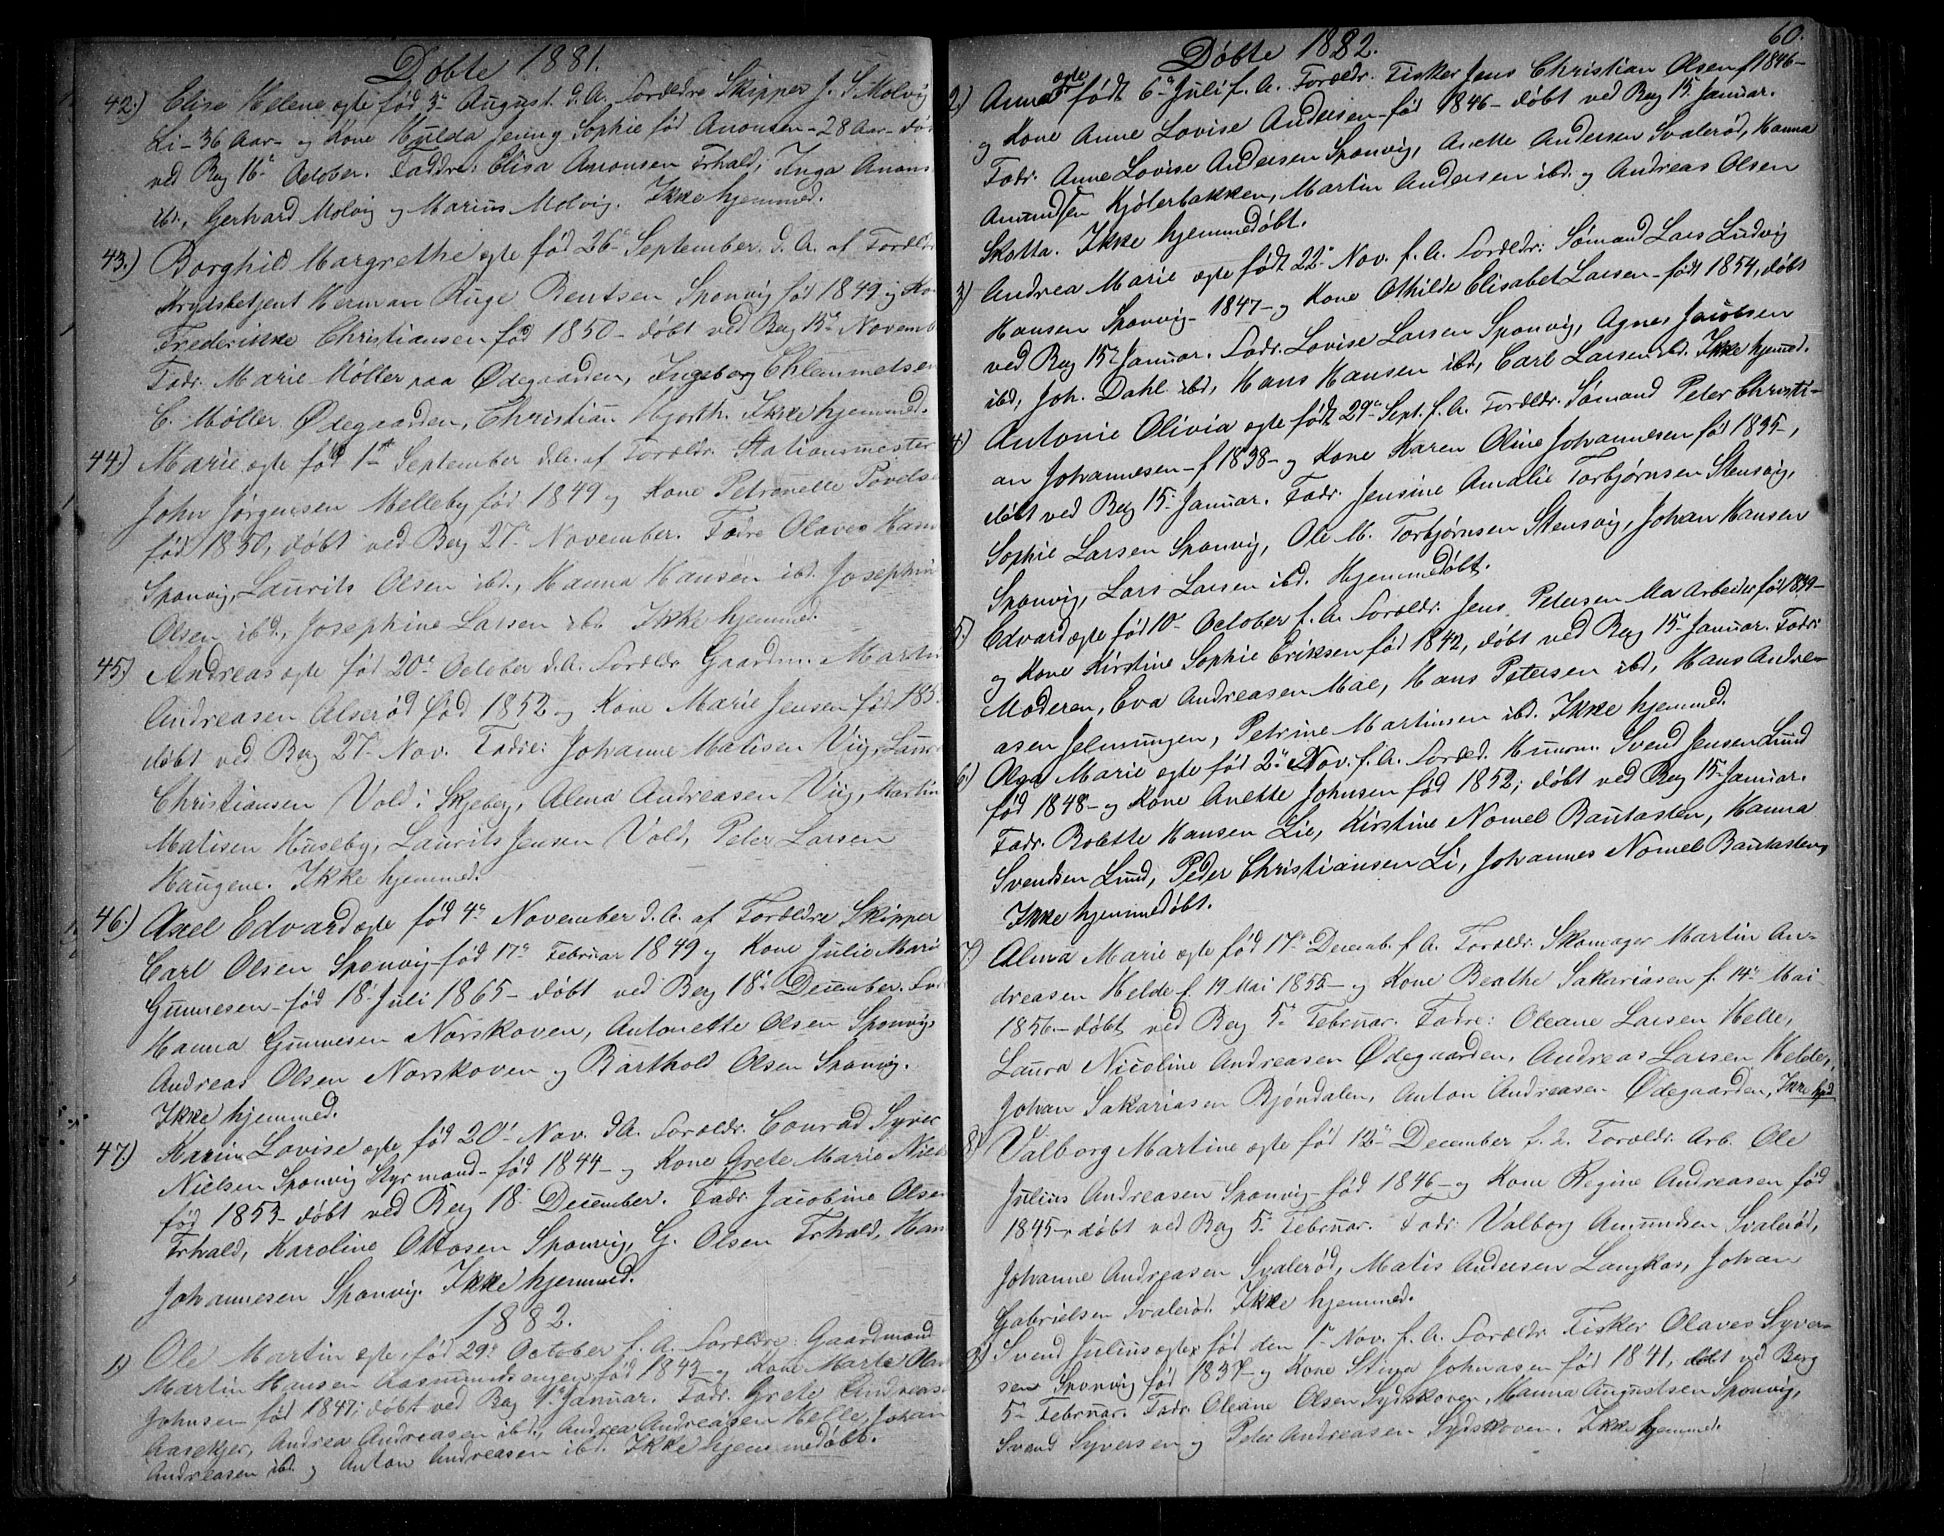 Døbte 1881.
42.) Elise Helene egte fød 3. August. d. A. Foreldre Skipper J. S. Molvig
Li - 36 Aar - og Kone Hulda Jenny Sophie fød Anonsen - 28 Aar - døb
ved Berg 16. October. Faddre: Elisa Anonsen Tshald; Inga Anons
ibd., Gerhard Molvig og Marius Molvig. Ikke hjemmed.
43.) Borghild Margrethe egte fød 26. September. d. A. af Foreldr
Krydsbetjent Herman Ruge Bentsen Sponvig fød 1849 og Ko
Frederikke Christiansen fød 1850 - døbt ved Berg 13. Novemb
Fadr. Marie Møller paa Ødegaarden, Ingeborg Chlemmetsen
C. Møller Ødegaarden, Christian Hjorth. Ikke hjemmed.
44.) Marie egte fød 1st September d. A. af Foreldr. Stationsmester
John Jørgensen Melleby fød 1849 og Kone Petronelle Povels
fød 1850, døbt ved Berg 27. November. Fadre Olaves Han
Sponvig, Laurits Olsen ibd., Hanna Hansen ibd. Josephin
Olsen ibd., Josephine Larsen ibd. Ikke hjemmed.
45.) Andreas egte fød 20. October d. A. Foreldr. Gaardm. Martin
Andreasen Alserød fød 1852 og Kone Marie Jensen fød 185
døbt ved Berg 27. Nov. Fadre: Johanne Matisen Viig, Laur
Christiansen Vold i Skjeberg, Alma Andreasen Viig, Martin
Matisen Huseby, Laurits Jensen Vold, Peter Larsen
Haugene. Ikke hjemmed.
46.) Axel Edvard egte fød 4. November d. A. af Foreldre Skipper
Carl Olsen Sponvig fød 17. Februar 1849 og Kone Julie Marie
Gunnesen - fød 18. Juli 1865 - døbt ved Berg 18. December. Fad
Hanna Gunnesen Norskoven, Antonette Olsen Sponvig
Andreas Olsen Norskoven og Barthold Olsen Sponvig.
Ikke hjemmed.
47.) Karin Lovise egte fød 20. Nov. d. A. Foreldr. Conrad Syver
Nielsen Sponvig Styrmand - fød 1844 - og Kone Grete Marie Niels
fød 1853 - døbt ved Berg 18. December. Fadr. Jacobine Olsen
Tshald, Karoline Ottosen Sponvig, G. Olsen Tshald, Han
Johannesen Sponvig. Ikke hjemmed.
1882.
1.) Ole Martin egte, fød 29. October f. A. Foreldre: Gaardmand
Martin Hansen Aasmundsengen fød 1843 - og Kone Marte Ola
Johnsen fød 1847; døbt ved Berg 1. Januar. Fadr. Grete Andreas
Aasekjer, Andrea Andreasen ibd., Andrea Andreasen Helle, Johan
Andreasen ibd og Anton Andreasen ibd. Ikke hjemmedøbt.
60.
Døbte 1882.
2.) Anna egte født 6. Juli f. A. Foreldr. Fisker Jens Christian Olsen f 1846 -
og Kone Anne Lovise Andersen - fød 1846 - døbt ved Berg 15. Januar.
Fadr. Anne Lovise Andersen Sponvig, Anette Andersen Svalerød, Hanna
Amundsen Kjølerbakken, Martin Andersen ibd. og Andreas Olsen
Skotta. Ikke hjemmedøbt.
3.) Andrea Marie egte født 22. Nov. f. A. Foreldr: Sømand Lars Ludvig
Hansen Sponvig - 1847 - og Kone Othilde Elisabet Larsen - født 1854, døbt
ved Berg 15. Januar. Fadr. Lovise Larsen Sponvig, Agnes Jacobsen
ibd, Joh. Dahl ibd, Hans Hansen ibd, Carl Larsen ibd. Ikke hjemmed.
4.) Antonie Olivia egte født 29. Sept. f. A. Foreldr. Sømand Peter Christi-
an Johannesen - f 1838 - og Kone Karen Oline Johannesen fød 1835 -,
døbt ved Berg 15. Januar. Fadr. Jensine Amalie Torbjørnsen Stensvig,
Sophie Larsen Sponvig, Ole M. Torbjørnsen Stensvig, Johan Hansen
Sponvig, Lars Larsen ibd. Hjemmedøbt.
5.) Edvard egte fød 10. October f. A. Foreldr. Jens Petersen Mae Arbeider fød 1839 -
og Kone Kirstine Sophie Eriksen fød 1842, døbt ved Berg 15. Januar. Fadr:
Moderen, Eva Andreasen Mae, Hans Petersen ibd, Hans Andre-
asen Jelmungen, Petrine Martinsen ibd. Ikke hjemmed.
6.) Olga Marie egte fød 2. Nov. f. A. Foreld. Husm. Svend Jensen Lund
fød 1848 - og Kone Anette Johnsen fød 1852; døbt ved Berg 15. Januar.
Fadr. Bolette Hansen Lie, Kirstine Nomel Bautasten, Hanna
Svendsen Lund, Peder Christiansen Li, Johannes Nomel Bautasten,
Ikke hjemmedøbt.
7.) Alma Marie egte fød 17. Decemb. f. A. Foreldr. Skomager Martin An-
dreasen Helde f. 19 Mai 1852 - og Kone Berthe Sakariasen f. 14. Mai
1856 - døbt ved Berg 5. Februar. Fadre: Oleane Larsen Helle,
Laura Nicoline Andreasen Ødegaarden, Andreas Larsen Helde,
Johan Sakariasen Bjøndalen, Anton Andreasen Ødegaarden, Ikke hjd
8.) Valborg Martine egte fød 12. December f. A. Foreldr. Arb. Ole
Julius Andreasen Sponvig - fød 1846 - og Kone Regine Andreasen fød
1845 - døbt ved Berg 5. Februar. Fadr: Valborg Amundsen Svalerød,
Johanne Andreasen Svalerød, Matis Andersen Langkas, Johan
Gabrielsen Svalerød. Ikke hjemmed.
9.) Svend Julius egte fød den 1. Nov. f. A. Foreldr Fisker Olaves Syver-
sen Sponvig fød 1837 - og Kone Stina Johnasen fød 1841, døbt ved Berg
5. Februar. Fadr. Oleane Olsen Sydskoven, Hanna Augustsen Sponvig,
Svend Syversen og Peter Andreasen Sydskoven. Ikke hjemmed.